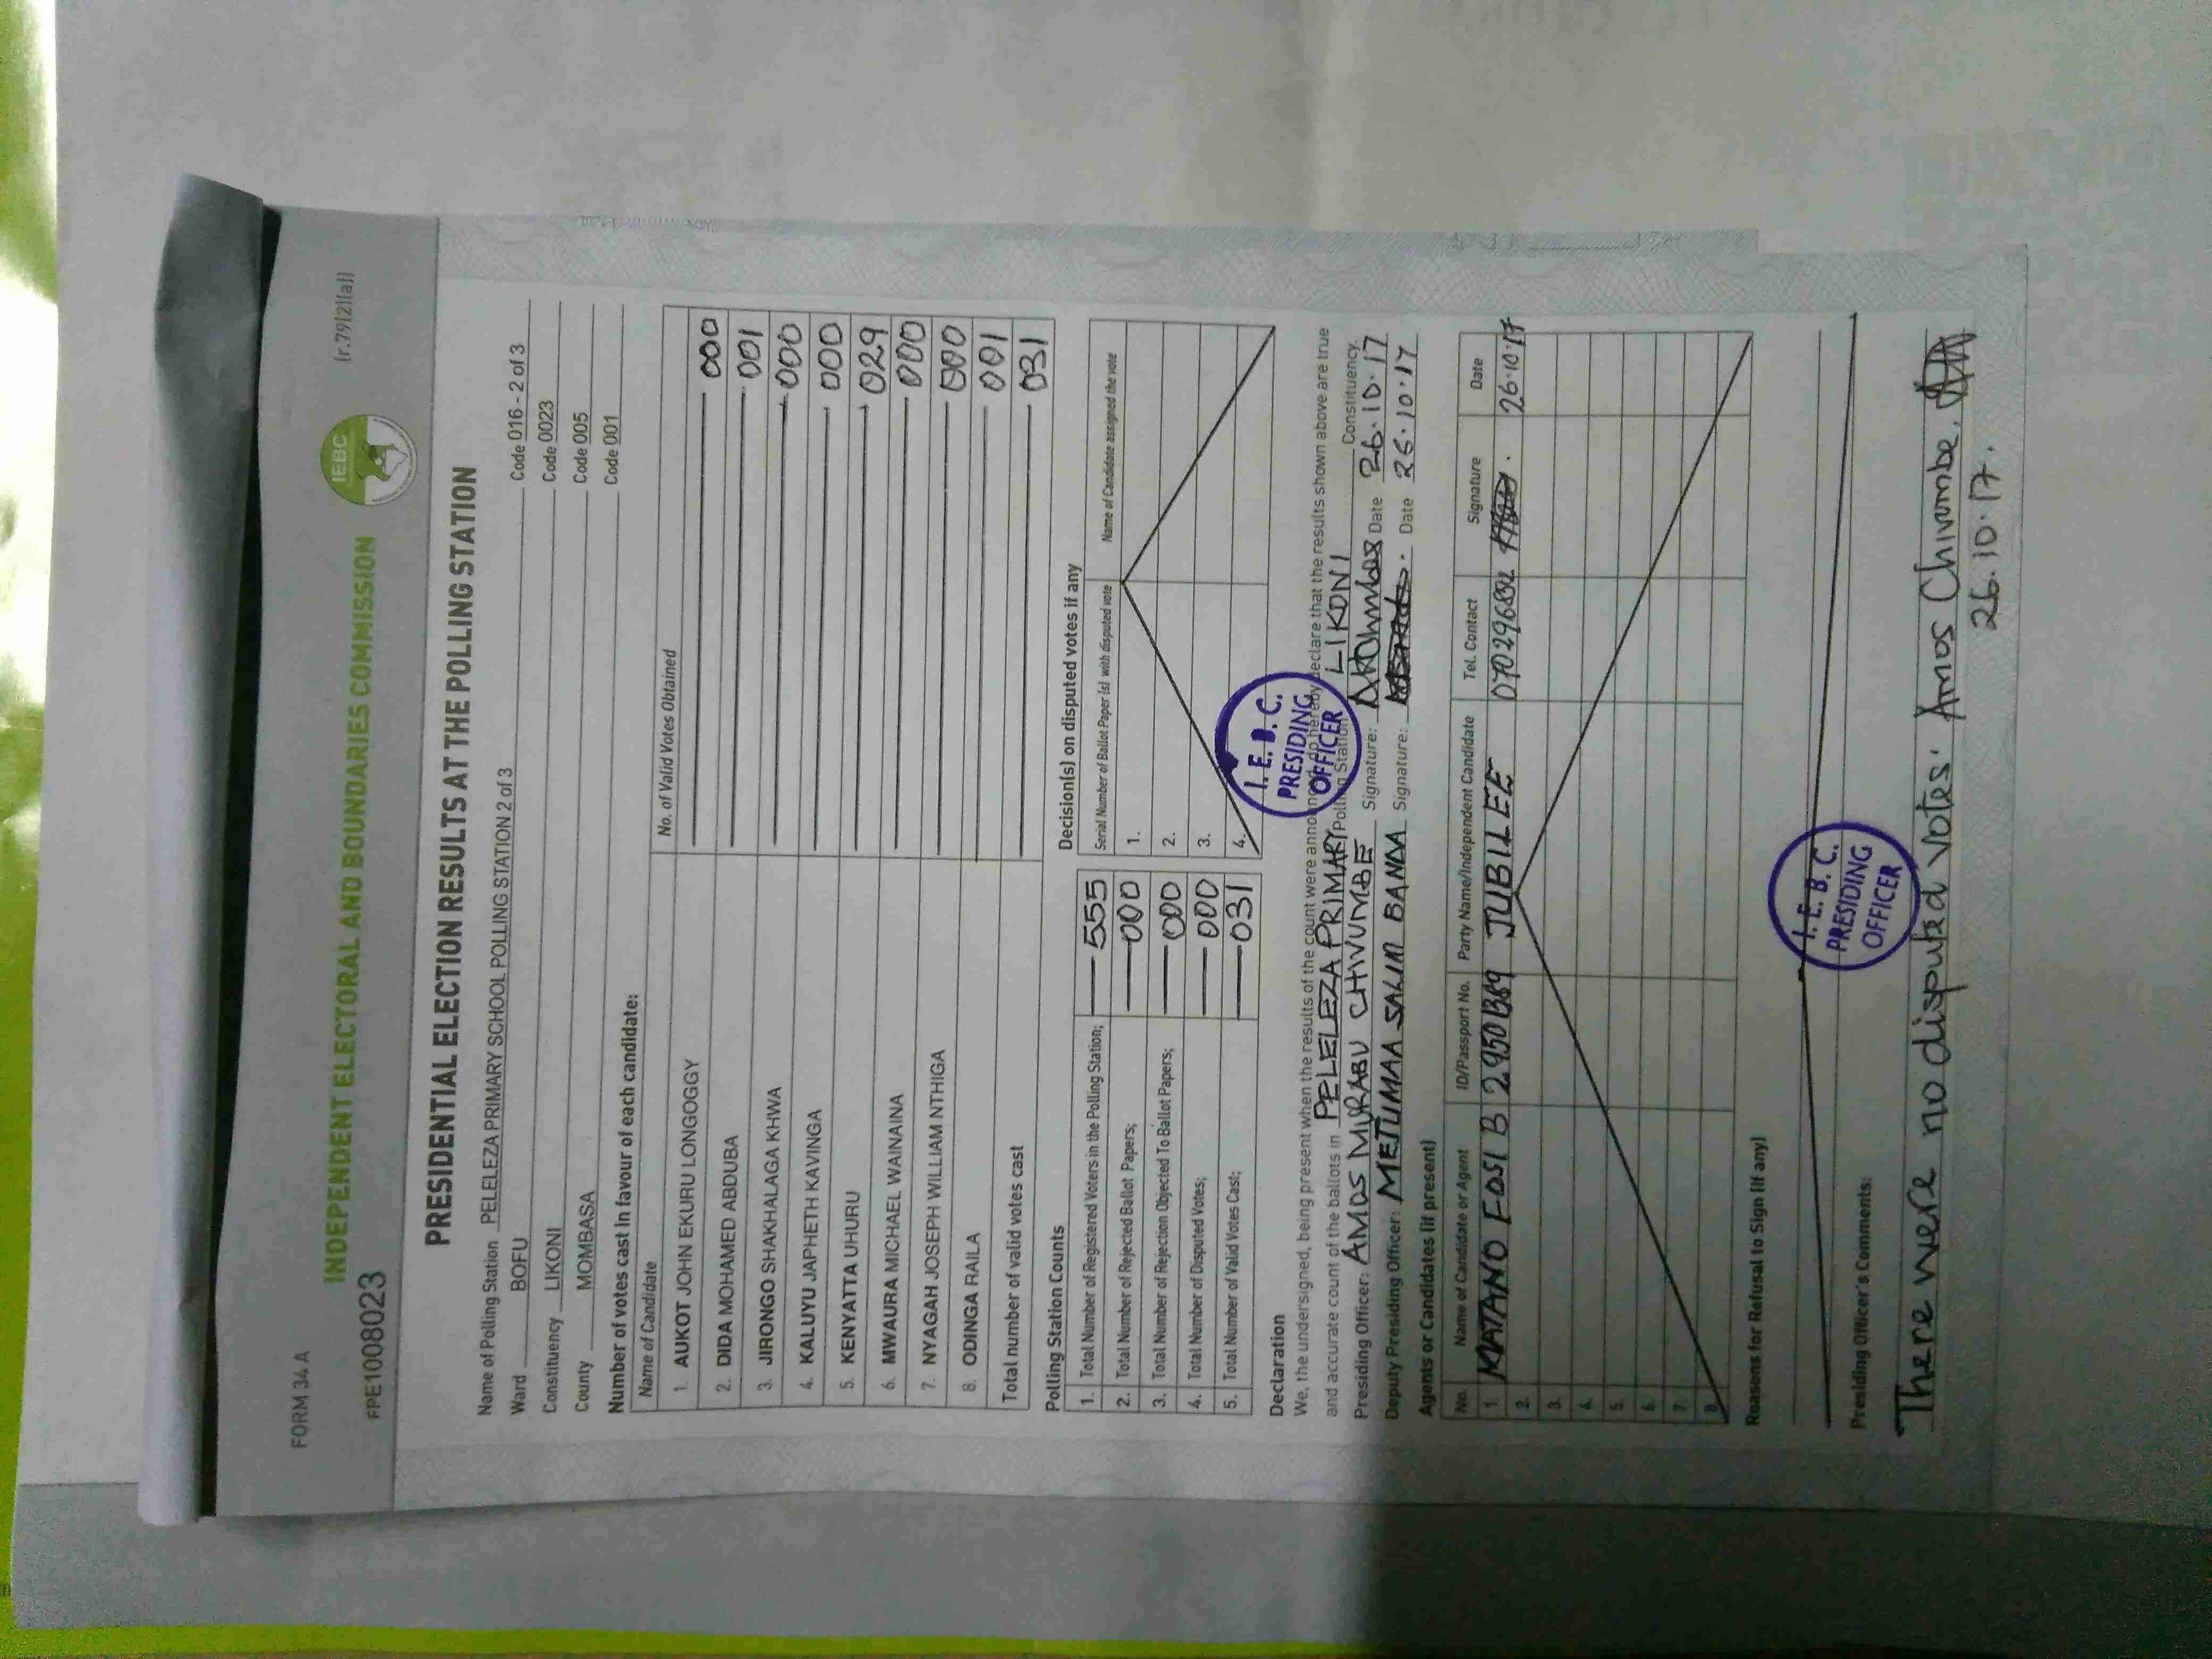 FORM 34 A
(r.79(2)(a))
INDEPENDENT ELECTORAL AND BOUNDARIES COMMISSION
IEBC
FPE1008023
PRESIDENTIAL ELECTION RESULTS AT THE POLLING STATION
Name of Polling Station PELELEZA PRIMARY SCHOOL POLLING STATION 2 of 3 Code 016 - 2 of 3
Ward BOFU Code 0023
Constituency LIKONI Code 005
County MOMBASA Code 001
Number of votes cast in favour of each candidate:
Name of Candidate No. of Valid Votes Obtained
1. AUKOT JOHN EKURU LONGOGGY 000
2. DIDA MOHAMED ABDUBA 001
3. JIRONGO SHAKHALAGA KHWA 000
4. KALUYU JAPHETH KAVINGA 000
5. KENYATTA UHURU 029
6. MWAURA MICHAEL WAINAINA 000
7. NYAGAH JOSEPH WILLIAM NTHIGA 000
8. ODINGA RAILA 001
Total number of valid votes cast 031
Polling Station Counts
1. Total Number of Registered Voters in the Polling Station; 555
2. Total Number of Rejected Ballot Papers; 000
3. Total Number of Rejection Objected To Ballot Papers; 000
4. Total Number of Disputed Votes; 000
5. Total Number of Valid Votes Cast; 031
Decision(s) on disputed votes if any
Serial Number of Ballot Paper (s) with disputed vote Name of Candidate assigned the vote
1.
2.
3.
4.
I.E.B.C.
PRESIDING
OFFICER
Declaration
We, the undersigned, being present when the results of the count were announced, do hereby declare that the results shown above are true
and accurate count of the ballots in PELELEZA PRIMARY Polling Station LIKONI Constituency.
Presiding Officer: AMOS MURABU CHIVUMBE Signature: Date 26.10.17
Deputy Presiding Officer: MEJUMAA SALIM BANDA Signature: Date 26.10.17
Agents or Candidates (if present)
No. Name of Candidate or Agent ID/Passport No. Party Name/Independent Candidate Tel. Contact Signature Date
1. KATANO EDSI B JUBILEE 26.10.17
2.
3.
4.
5.
6.
7.
8.
Reasons for Refusal to Sign (if any)
I.E.B.C.
PRESIDING
OFFICER
Presiding Officer's Comments:
There were no disputed votes. Amos Chivumbe.
26.10.17.